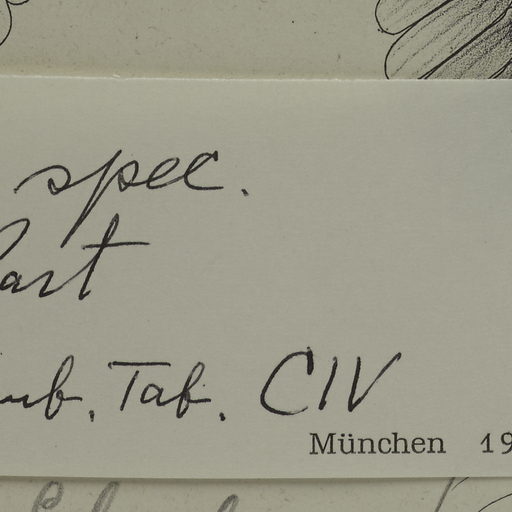 spec.
Mart
Tab. CIV
München 19